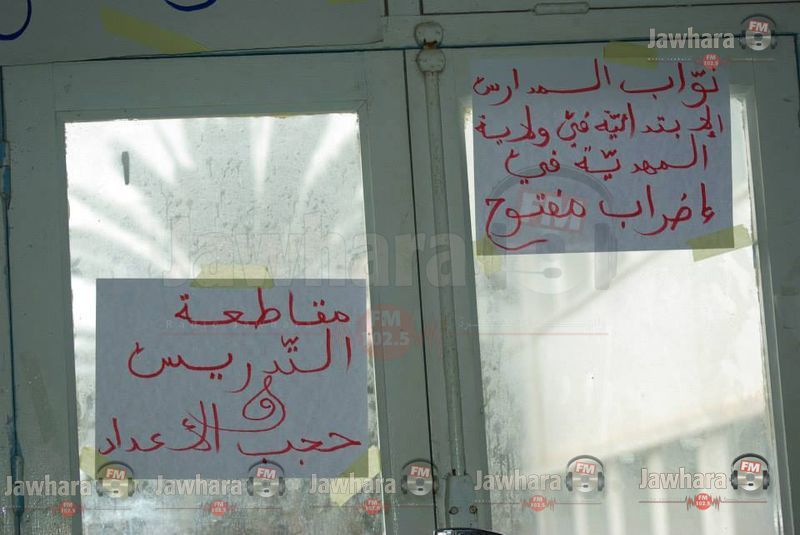 نوّاب المدارس
الإبتدائيّة في ولاية
المهديّة في
إضراب مفتوح
مقاطعة
التّدريس
و
حجب الأعداد
Jawhara FM
102.5
Jawhara FM
102.5
Jawhara FM
102.5
Jawhara FM
102.5
Jawhara FM
102.5
Jawhara FM
102.5
Jawhara FM
102.5